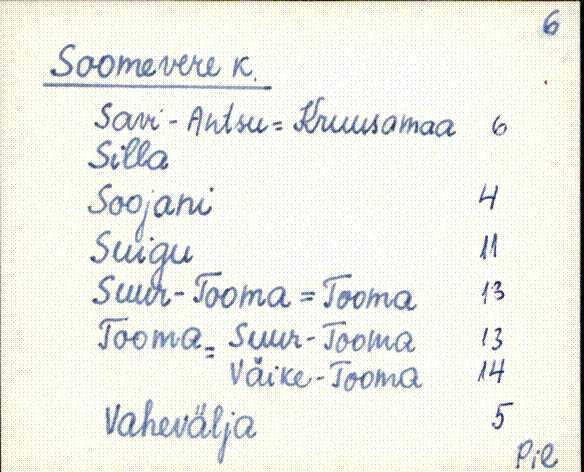 6
Soomevere k.
Savi-Antsu = Kruusamaa 6
Silla
Soojani 4
Suigu 11
Suur-Tooma = Tooma 13
Tooma = Suur-Tooma 13
Väike-Tooma 14
Vahevälja 5
Pil